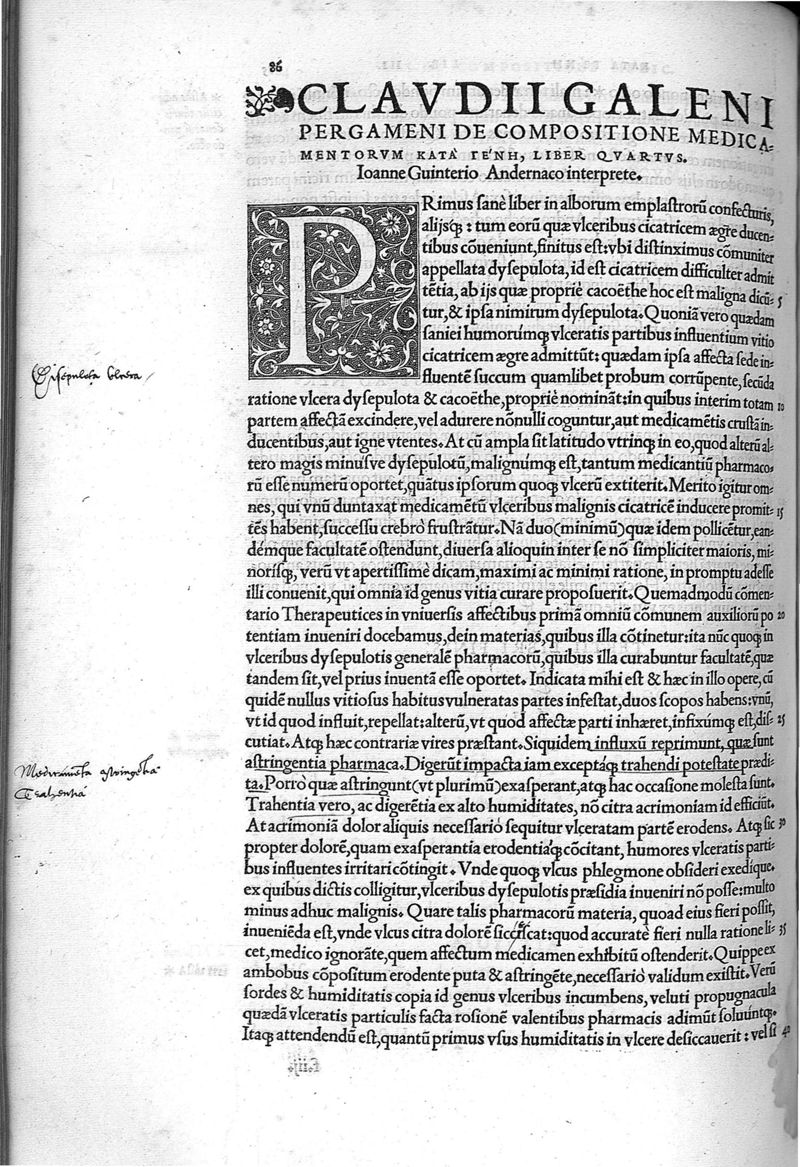 86
CLAVDII GALENI
PERGAMENI DE COMPOSITIONE MEDICA-
MENTORVM ΚΑΤᾺ ΓΈΝΗ, LIBER QVARTVS.
Ioanne Guinterio Andernaco interprete.
PRimus sanè liber in alborum emplastrorũ confecturis,
alijsq̃ : tum eorũ quæ vlceribus cicatricem ægre ducen-
tibus cõueniunt, finitus est: vbi distinximus cõmuniter
appellata dysepulota, id est cicatricem difficulter admit
tẽtia, ab ijs quæ propriè cacoëthe hoc est maligna dicũ- 5
tur, & ipsa nimirum dysepulota. Quoniã vero quædam
saniei humorúmq̃ vlceratis partibus influentium vitio
cicatricem ægre admittũt: quædam ipsa affecta sede in-
fluentẽ succum quamlibet probum corrũpente, secũda
ratione vlcera dysepulota & cacoëthe, propriè nominãt: in quibus interim totam 10
partem affectã excindere, vel adurere nõnulli coguntur, aut medicamẽtis crustã in-
ducentibus, aut igne vtentes. At cũ ampla sit latitudo vtrinq̃ in eo, quod alterũ al-
tero magis minúsve dysepulotũ, malignúmq̃ est, tantum medicantiũ pharmaco-
rũ esse numerũ oportet, quãtus ipsorum quoq̃ vlcerũ extiterit. Merito igitur om-
nes, qui vnũ duntaxat medicamẽtũ vlceribus malignis cicatricẽ inducere promit- 15
tẽs habent, successu crebrò frustrãtur. Nã duo (minimũ) quæ idem pollicẽtur, ean-
démque facultatẽ ostendunt, diuersa alioquin inter se nõ simpliciter maioris, mi-
norisq̃, verũ vt apertissimè dicam, maximi ac minimi ratione, in promptu adesse
illi conuenit, qui omnia id genus vitia curare proposuerit. Quemadmodũ cõmen-
tario Therapeutices in vniuersis affectibus primã omniũ cõmunem auxiliorũ po 20
tentiam inueniri docebamus, dein materias, quibus illa cõtinetur: ita nũc quoq̃ in
vlceribus dysepulotis generalẽ pharmacorũ, quibus illa curabuntur facultatẽ, quæ
tandem sit, vel prius inuentã esse oportet. Indicata mihi est & hæc in illo opere, cũ
quidẽ nullus vitiosus habitus vulneratas partes infestat, duos scopos habens: vnũ,
vt id quod influit, repellat: alterũ, vt quod affectæ parti inhæret, infixúmq̃ est, dis- 25
cutiat. Atq̃ hæc contrariæ vires præstant. Siquidem influxũ reprimunt, quæ sunt
astringentia pharmaca. Digerũt impacta iam exceptáq̃ trahendi potestate prædi-
ta. Porrò quæ astringunt (vt plurimũ) exasperant, atq̃ hac occasione molesta sunt.
Trahentia vero, ac digerẽtia ex alto humiditates, nõ citra acrimoniam id efficiũt.
At acrimoniã dolor aliquis necessariò sequitur vlceratam partẽ erodens. Atq̃ sic 30
propter dolorẽ, quam exasperantia erodentiáq̃ cõcitant, humores vlceratis parti-
bus influentes irritari cõtingit. Vnde quoq̃ vlcus phlegmone obsideri exedique.
ex quibus dictis colligitur, vlceribus dysepulotis præsidia inueniri nõ posse: multo
minus adhuc malignis. Quare talis pharmacorũ materia, quoad eius fieri possit,
inueniẽda est, vnde vlcus citra dolorẽ siccescat: quod accuratè fieri nulla ratione li- 35
cet, medico ignorãte, quem affectum medicamen exhibitũ ostenderit. Quippe ex
ambobus cõpositum erodente puta & astringẽte, necessariò validum existit. Verũ
sordes & humiditatis copia id genus vlceribus incumbens, veluti propugnacula
quædã vlceratis particulis facta rosionẽ valentibus pharmacis adimũt soluũtq̃.
Itaq̃ attendendũ est, quantũ primus vsus humiditatis in vlcere desiccauerit: vel si 40
Disepulota vlcera
Medicamẽta astringẽtia
Trahentia